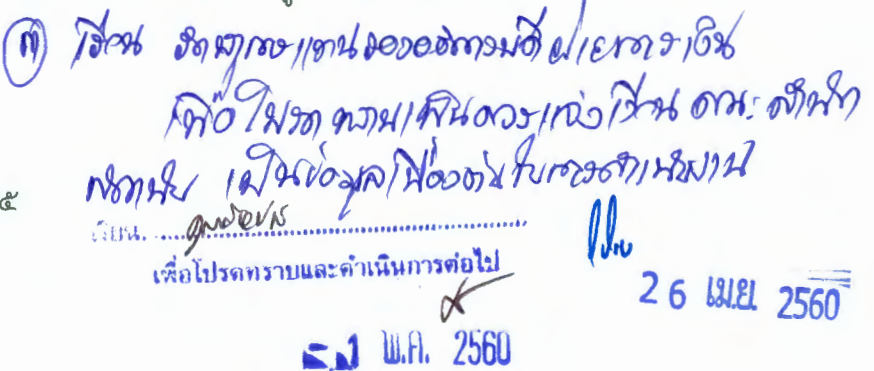 (๓) เรียน รักษาการแทนรองอธิการบดีฝ่ายการเงิน
เพื่อโปรดทราบเห็นควรแจ้งเวียน คณะ สำนัก
เป็นข้อมูลเบื้องต้นในการดำเนินงาน
๕
เรียน
เพื่อโปรดทราบและดำเนินการต่อไป
26 เม.ย. 2560
พ.ค. 2560